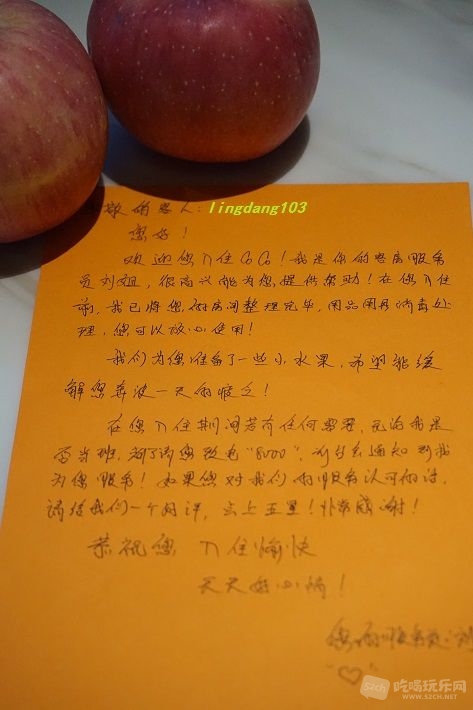 敬的客人:
lingdang103
您好!
欢迎您入住GoGo!我是你的客房服务
员刘姐,很高兴能为您提供帮助!在您入住
前,我已将您的房间整理完毕,用品用具消毒处
理,您可以放心使用!
我们为您准备了一些小水果,希望能缓
解您奔波一天的疲乏!
在您入住期间若有任何需要,无论我是
否当班,都可请您致电"8000",前台会通知到我
为您服务!如果您对我们的服务认可的话,
请给我们一个好评,点上五星!非常感谢!
恭祝您入住愉快
天天好心情!
您的服务员:刘
"♡"
吃喝玩乐网
WWW.SZCH.NET